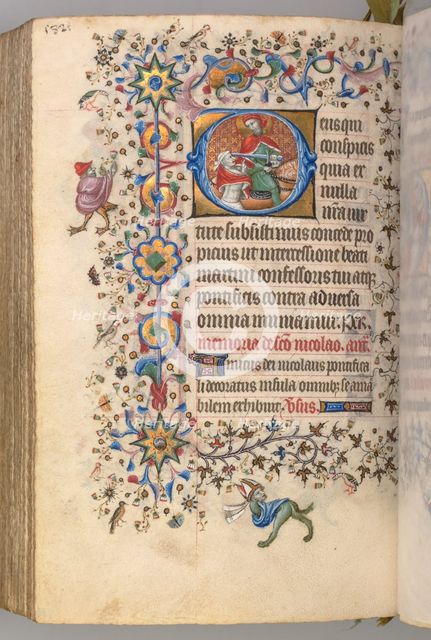 182
Deus qui
conspicis
quia ex
nulla
n̄ra uir
tute subsistimus concede pro
picius ut intercessione beati
martini confessoris tui atq;
pontificis contra aduersa
omnia muniamur. Per.
memoria de sco nicolao. añ.
Amicus dei nicolaus pontifica
li decoratus infula omnibus se ama
bilem exhibuit. V̄sus.
Heritage
Heritage